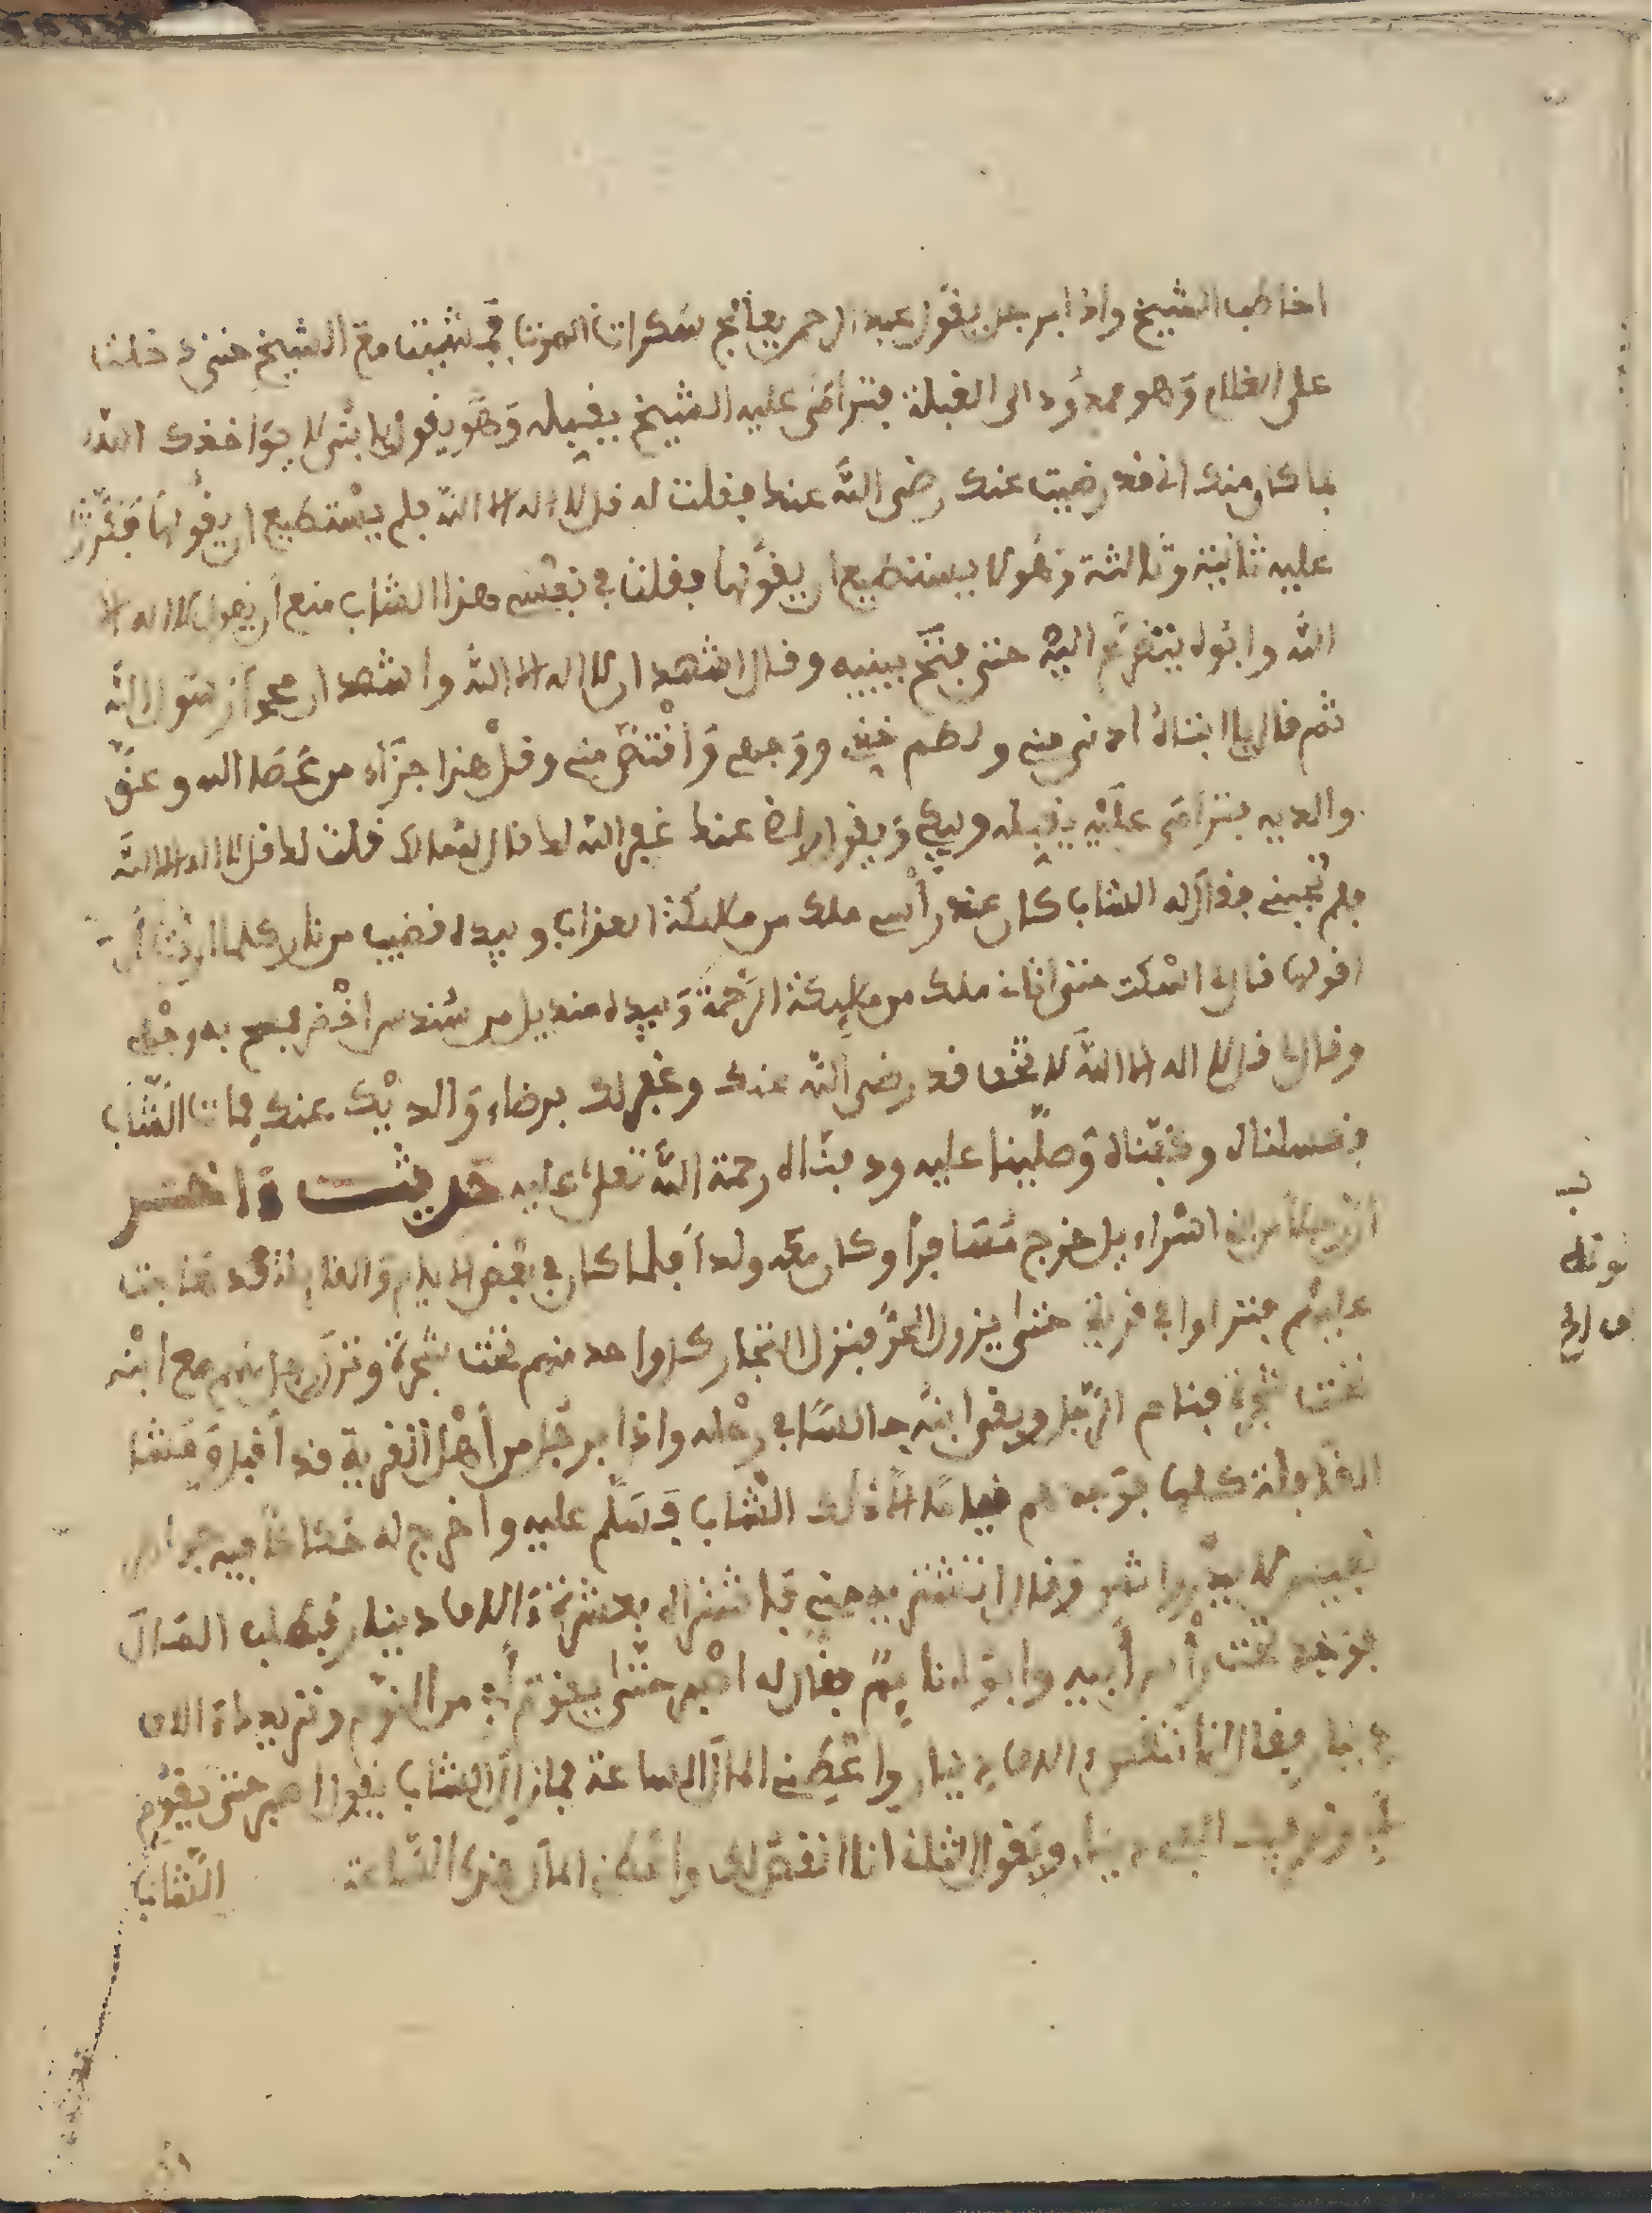 اخاطب الشيخ واذا برجل يقول عبد الرحمن يعالج سكرات الموت فمشيت مع الشيخ حتى دخلنا
على الغلام وهو ممدود الى القبلة فترامى عليه الشيخ يقبله وهو يقول يا بني لا يواخذك الله
بما كان منك اني قد رضيت عنك رضي الله عنك فقلت له قل لا اله الا الله فلم يستطيع ان يقولها فكررت
عليه ثانية وثالثة وهو لا يستطيع ان يقولها فقلت في نفسي هذا الشاب منع ان يقول لا اله الا
الله وابوه يتضرع اليه حتى فتح عينيه وقال اشهد ان لا اله الا الله واشهد ان محمدا رسول الله
ثم قال يا ابتاه ادن مني ولطم خدي ووجهي واقتص مني وقل هذا جزاء من عصا الله وعق
والديه فترامى عليه يقبله ويبكي ويقول عنك غفر الله لك قال فقلت له قل لا اله الا الله
فلم تجبني فقال له الشاب كان عند راسي ملك من ملائكة العذاب وبيده قضيب من نار كلما اردت ان
اقولها قال لي اسكت حتى اتاني ملك من ملايكة الرحمة وبيده منديل من سندس اخضر فمسح به وجهي
وقال لي قل لا اله الا الله لا تخف قد رضي الله عنك وغفر لك برضاء والديك عنك فمات الشاب
فغسلناه وكفناه وصلينا عليه ودفناه رحمة الله تعلى عليه حديث اخر
ان رجلا من بني اسراءيل خرج مسافرا وكان معه ولدا فلما كان في بعض الايام والقافلة قد
عليهم فنزلوا في قرية حتى يزول الحر فنزل التجار كل واحد منهم تحت شجرة ونزل رجل مع ابنه
تحت شجرة فنام الرجل وبقي ابنه جالسا في رحله واذا برجل من اهل القرية قد اقبل ومشا
القافلة كلها فوجدهم نياما الا ذلك الشاب فسلم عليه واخرج له فيه
وقال اتشتريه مني فاشتراه بعشرة الاف دينار فطلب المال
فوجده تحت راس ابيه وابوه نايم فقال له اصبر حتى يقوم ابي من النوم ونزيدك الاف
دينار فقال انا الاف دينار واعطني المال الساعة فمازال الشاب يقول اصبر حتى يقوم
ابي ونزيدك الف دينار ويقول الثاني انا انقص لك واعطني المال هذه الساعة
الشاب